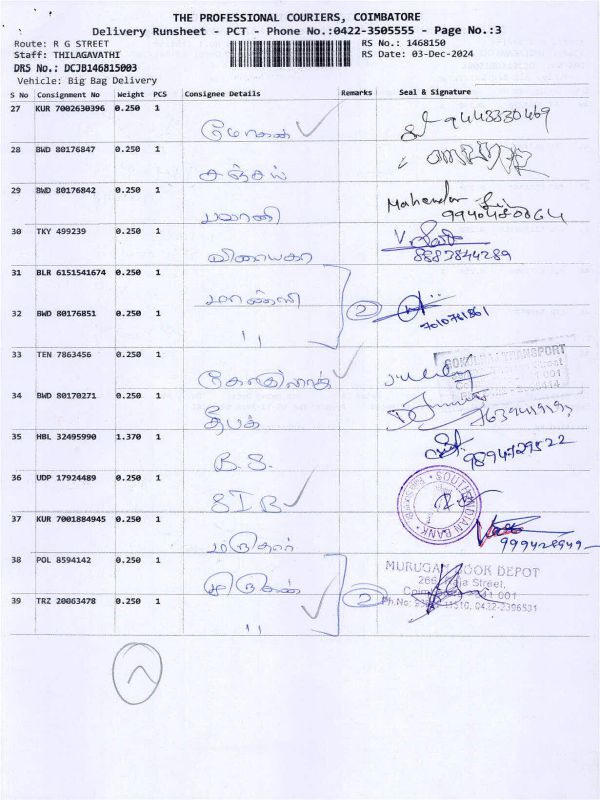 THE PROFESSIONAL COURIERS, COIMBATORE
Delivery Runsheet - PCT - Phone No.:0422-3505555 - Page No.:3
Route: R G STREET
RS No.: 1468150
Staff: THILAGAVATHI
RS Date: 03-Dec-2024
DRS No.: DCJB146815003
Vehicle: Big Bag Delivery
S No Consignment No Weight PCS Consignee Details Remarks Seal & Signature
27 KUR 7002630396 0.250 1
மோகன் 9443330469
28 BWD 80176847 0.250 1
சஞ்சய்
29 BWD 80176842 0.250 1
பவானி Mahendar
30 TKY 499239 0.250 1
விநாயகா 8883844289
31 BLR 6151541674 0.250 1
32 BWD 80176851 0.250 1
2
" 7010761861
33 TEN 7863456 0.250 1
34 BWD 80170271 0.250 1
தீபக்
35 HBL 32495990 1.370 1
B.S. 9894729522
36 UDP 17924489 0.250 1
SIB SOUTH INDIAN BANK
37 KUR 7001884945 0.250 1
38 POL 8594142 0.250 1
முருகன் MURUGAN BOOK DEPOT
Street,
39 TRZ 20063478 0.250 1
2
Ph.No: 0422-2396531
"